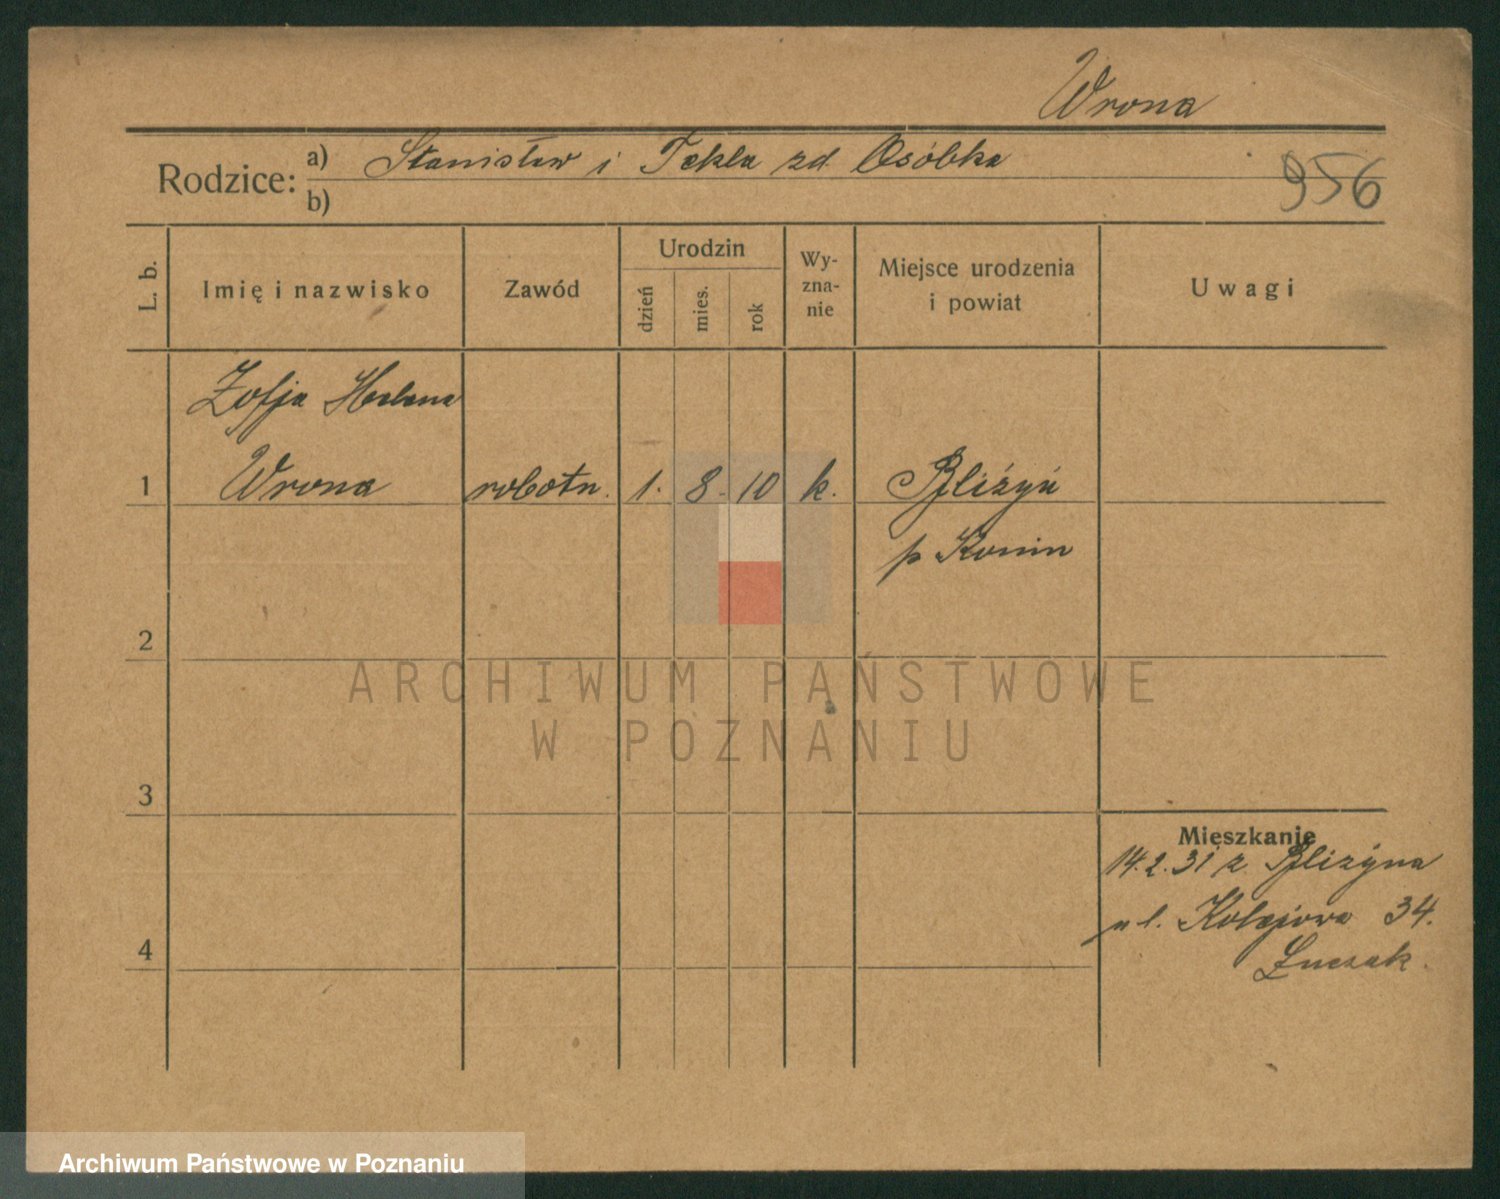 Wrona
Rodzice: a) Stanisław i Tekla zd. Osóbka
b)
956
L. b.
Imię i nazwisko
Zawód
Urodzin
dzień
mies.
rok
Wy-
zna-
nie
Miejsce urodzenia
i powiat
Uwagi
Zofja Helena
1 Wrona robotn. 1. 8. 10 k. Bliźyń
p Konin
2
3
4
Mieszkanie
14.2.31 z Bliżyna
ul. Kolejowa 34.
Łuczak.
ARCHIWUM PAŃSTWOWE
W POZNANIU
Archiwum Państwowe w Poznaniu